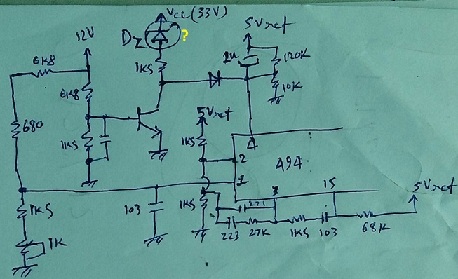 Vcc (33V)
12V
Dz
?
5Vref
6K8
1K5
2u
120K
10K
6K8
680
1K5
5Vref
1K5
4
2
494
1
1K5
1K5
103
3
15
5Vref
1K
223
27K
1K5
103
68K